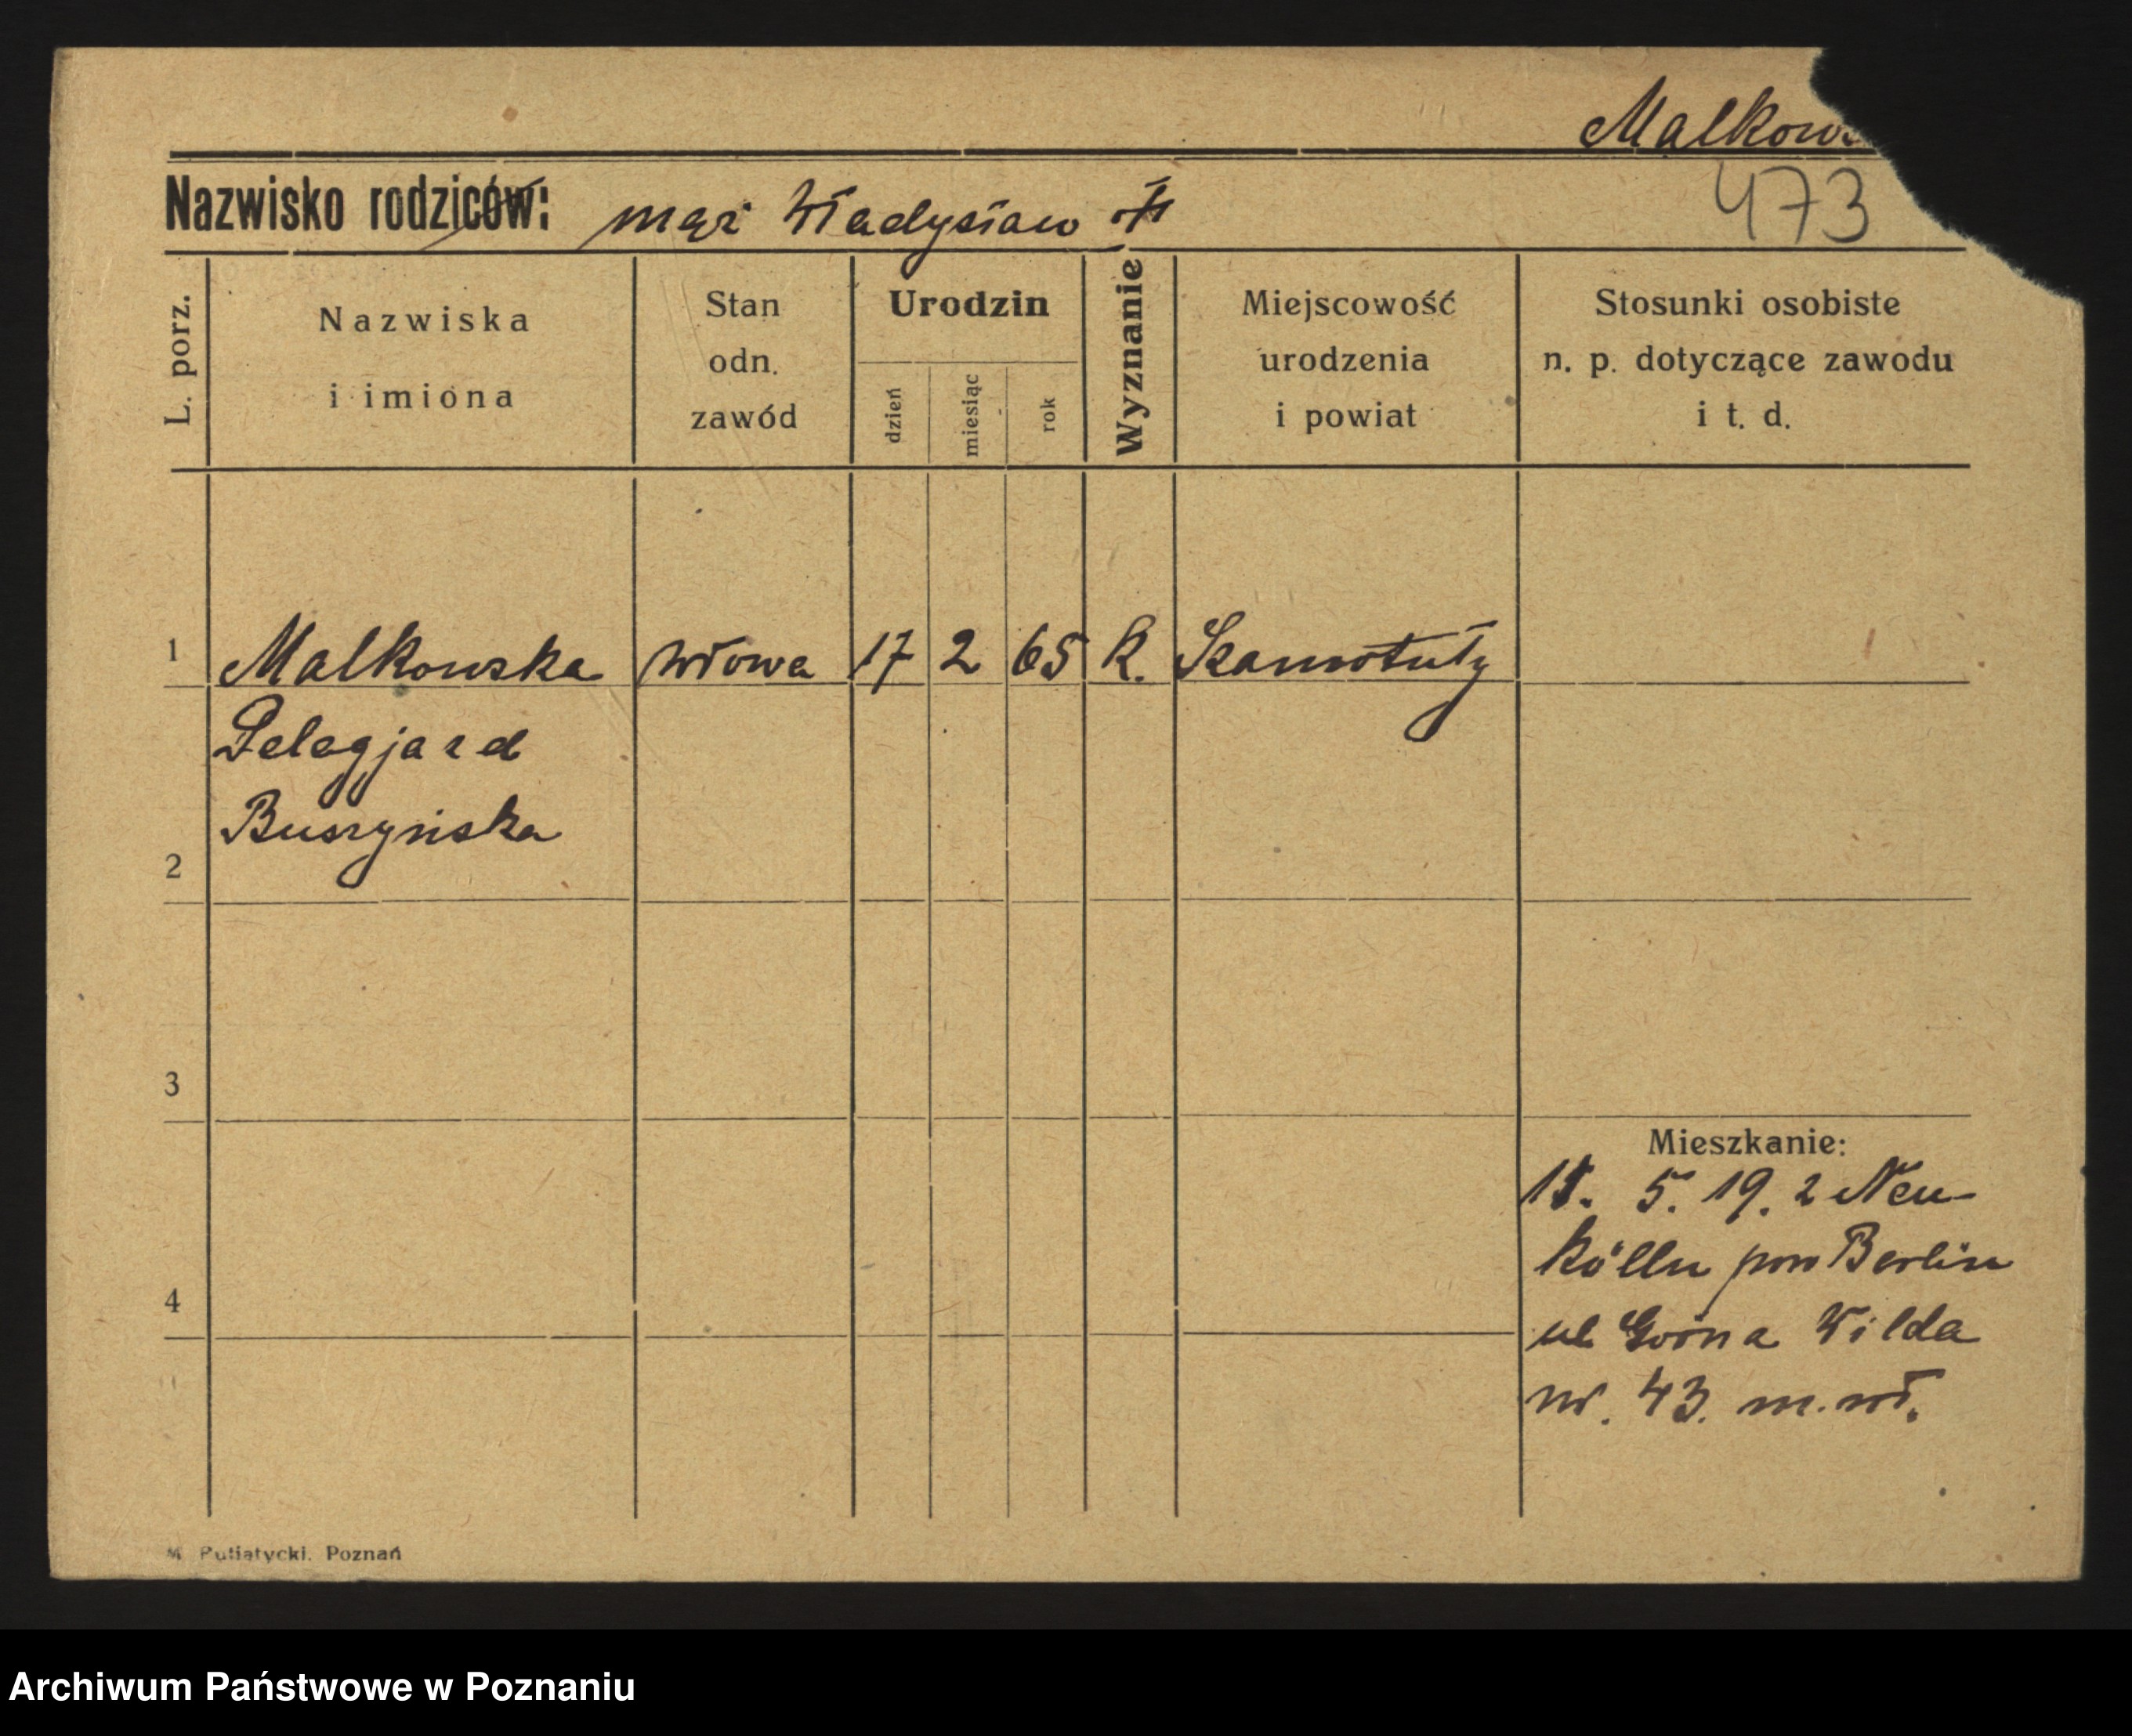 Malkows
473
Nazwisko rodziców: mąż Władysław
L. porz.
Nazwiska
i imiona
Stan
odn.
zawód
Urodzin
dzień
miesiąc
rok
Wyznanie
Miejscowość
urodzenia
i powiat
Stosunki osobiste
n. p. dotyczące zawodu
i t. d.
1 Malkowska wdowa 17 2 65 K. Szamotuły
Pelagja z d
Buszyńska
2
3
Mieszkanie:
5. 19. z Neu-
kölln pow Berlin
4
ul Górna Wilda
nr. 43. m. wł.
M. Putiatycki. Poznań
Archiwum Państwowe w Poznaniu